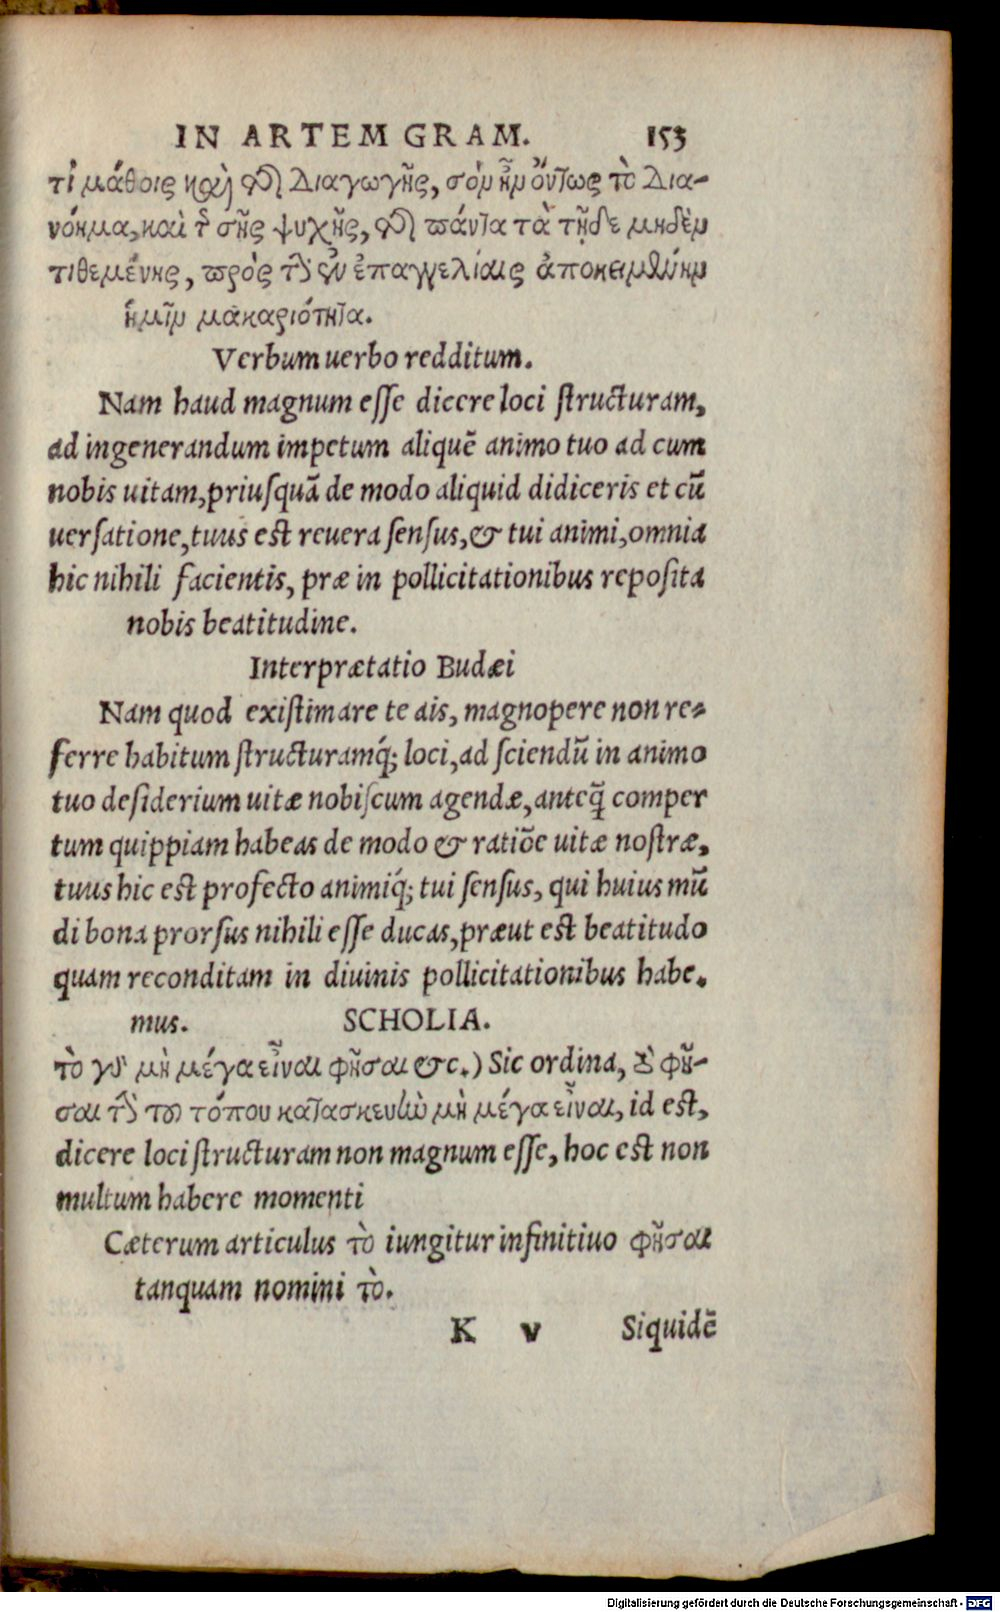 IN ARTEM GRAM. 153
τὶ μάθοις καὶ τῆς διαγωγῆς, σὸν ἦν ὄντως τὸ δια-
νόημα, καὶ τῆς σῆς ψυχῆς, τῆς πάντα τὰ τῇδε μηδὲν
τιθεμένης, πρὸς τὴν ἐν ἐπαγγελίαις ἀποκειμένην
ἡμῖν μακαριότητα.
Verbum uerbo redditum.
Nam haud magnum esse dicere loci structuram,
ad ingenerandum impetum aliquē animo tuo ad cum
nobis uitam, priusquā de modo aliquid didiceris et cū
uersatione, tuus est reuera sensus, & tui animi, omnia
hic nihili facientis, præ in pollicitationibus reposita
nobis beatitudine.
Interprætatio Budæi
Nam quod existimare te ais, magnopere non re-
ferre habitum structuramq́; loci, ad sciendū in animo
tuo desiderium uitæ nobiscum agendæ, anteq̃ comper
tum quippiam habeas de modo & ratiōe uitæ nostræ,
tuus hic est profecto animiq́; tui sensus, qui huius mū
di bona prorsus nihili esse ducas, præut est beatitudo
quam reconditam in diuinis pollicitationibus habe.
mus. SCHOLIA.
τὸ γὰρ μὴ μέγα εἶναι φῆσαι &c.) Sic ordina, τὸ φῆ-
σαι τὴν τοῦ τόπου κατασκευὴν μὴ μέγα εἶναι, id est,
dicere loci structuram non magnum esse, hoc est non
multum habere momenti
Cæterum articulus τὸ iungitur infinitiuo φῆσαι
tanquam nomini τὸ.
K v Siquidē
Digitalisierung gefördert durch die Deutsche Forschungsgemeinschaft - DFG